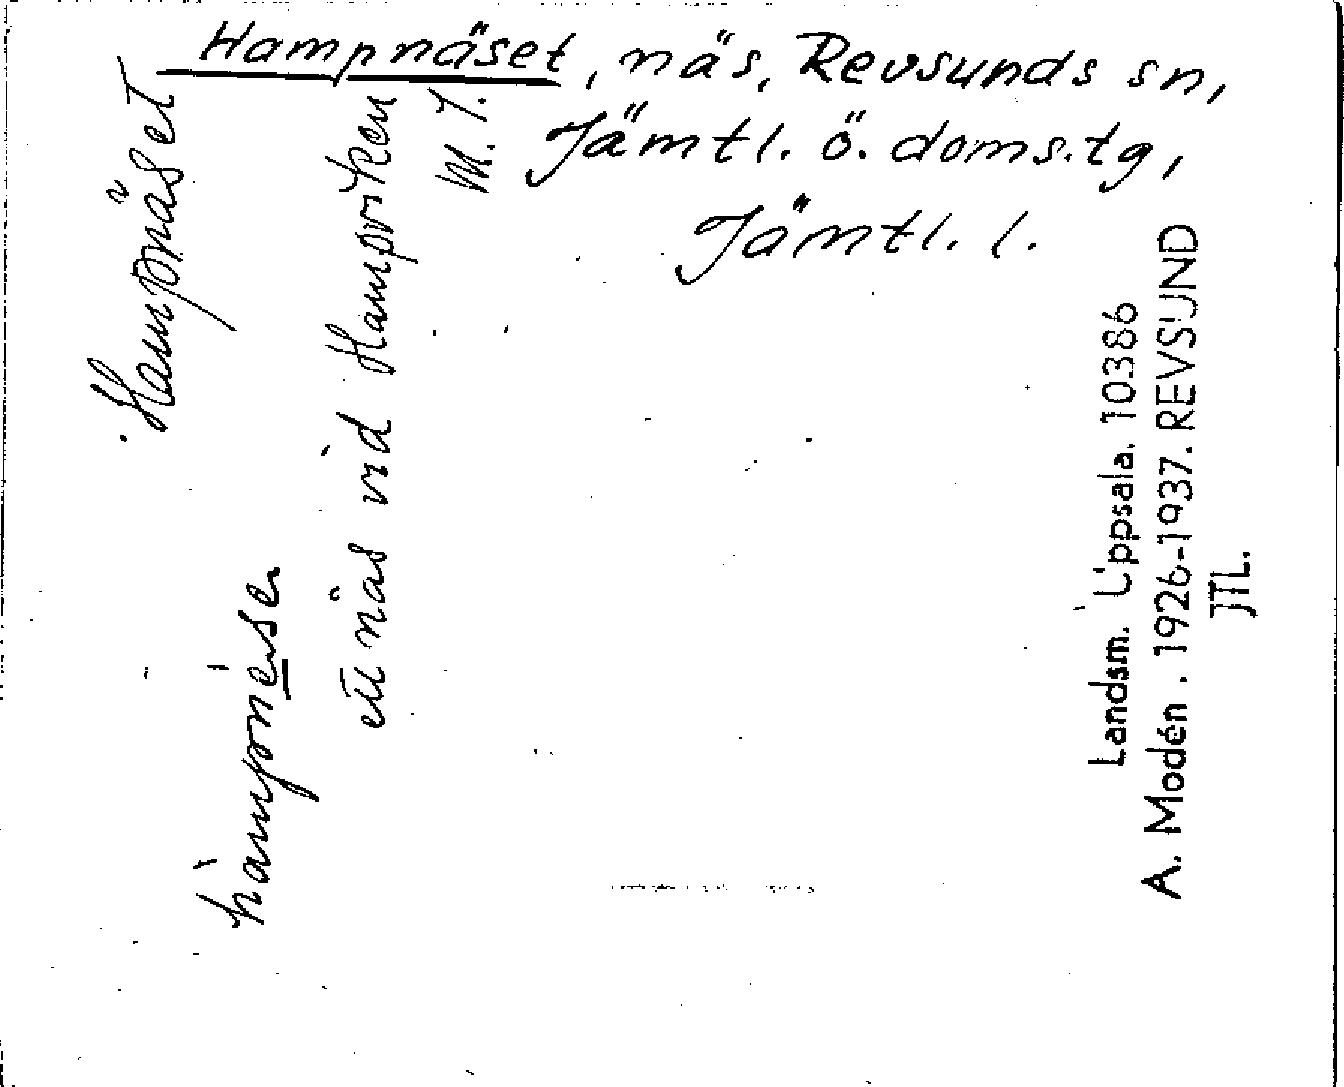 Hampnäset, näs, Revsunds sn,
Jämtl. ö. doms.tg,
Jämtl. l.
Hampnäset
hampnése
ett näs vid Hampviken
M. J.
Landsm. Uppsala. 10386
A. Modén. 1926-1937. REVSUND
JTL.